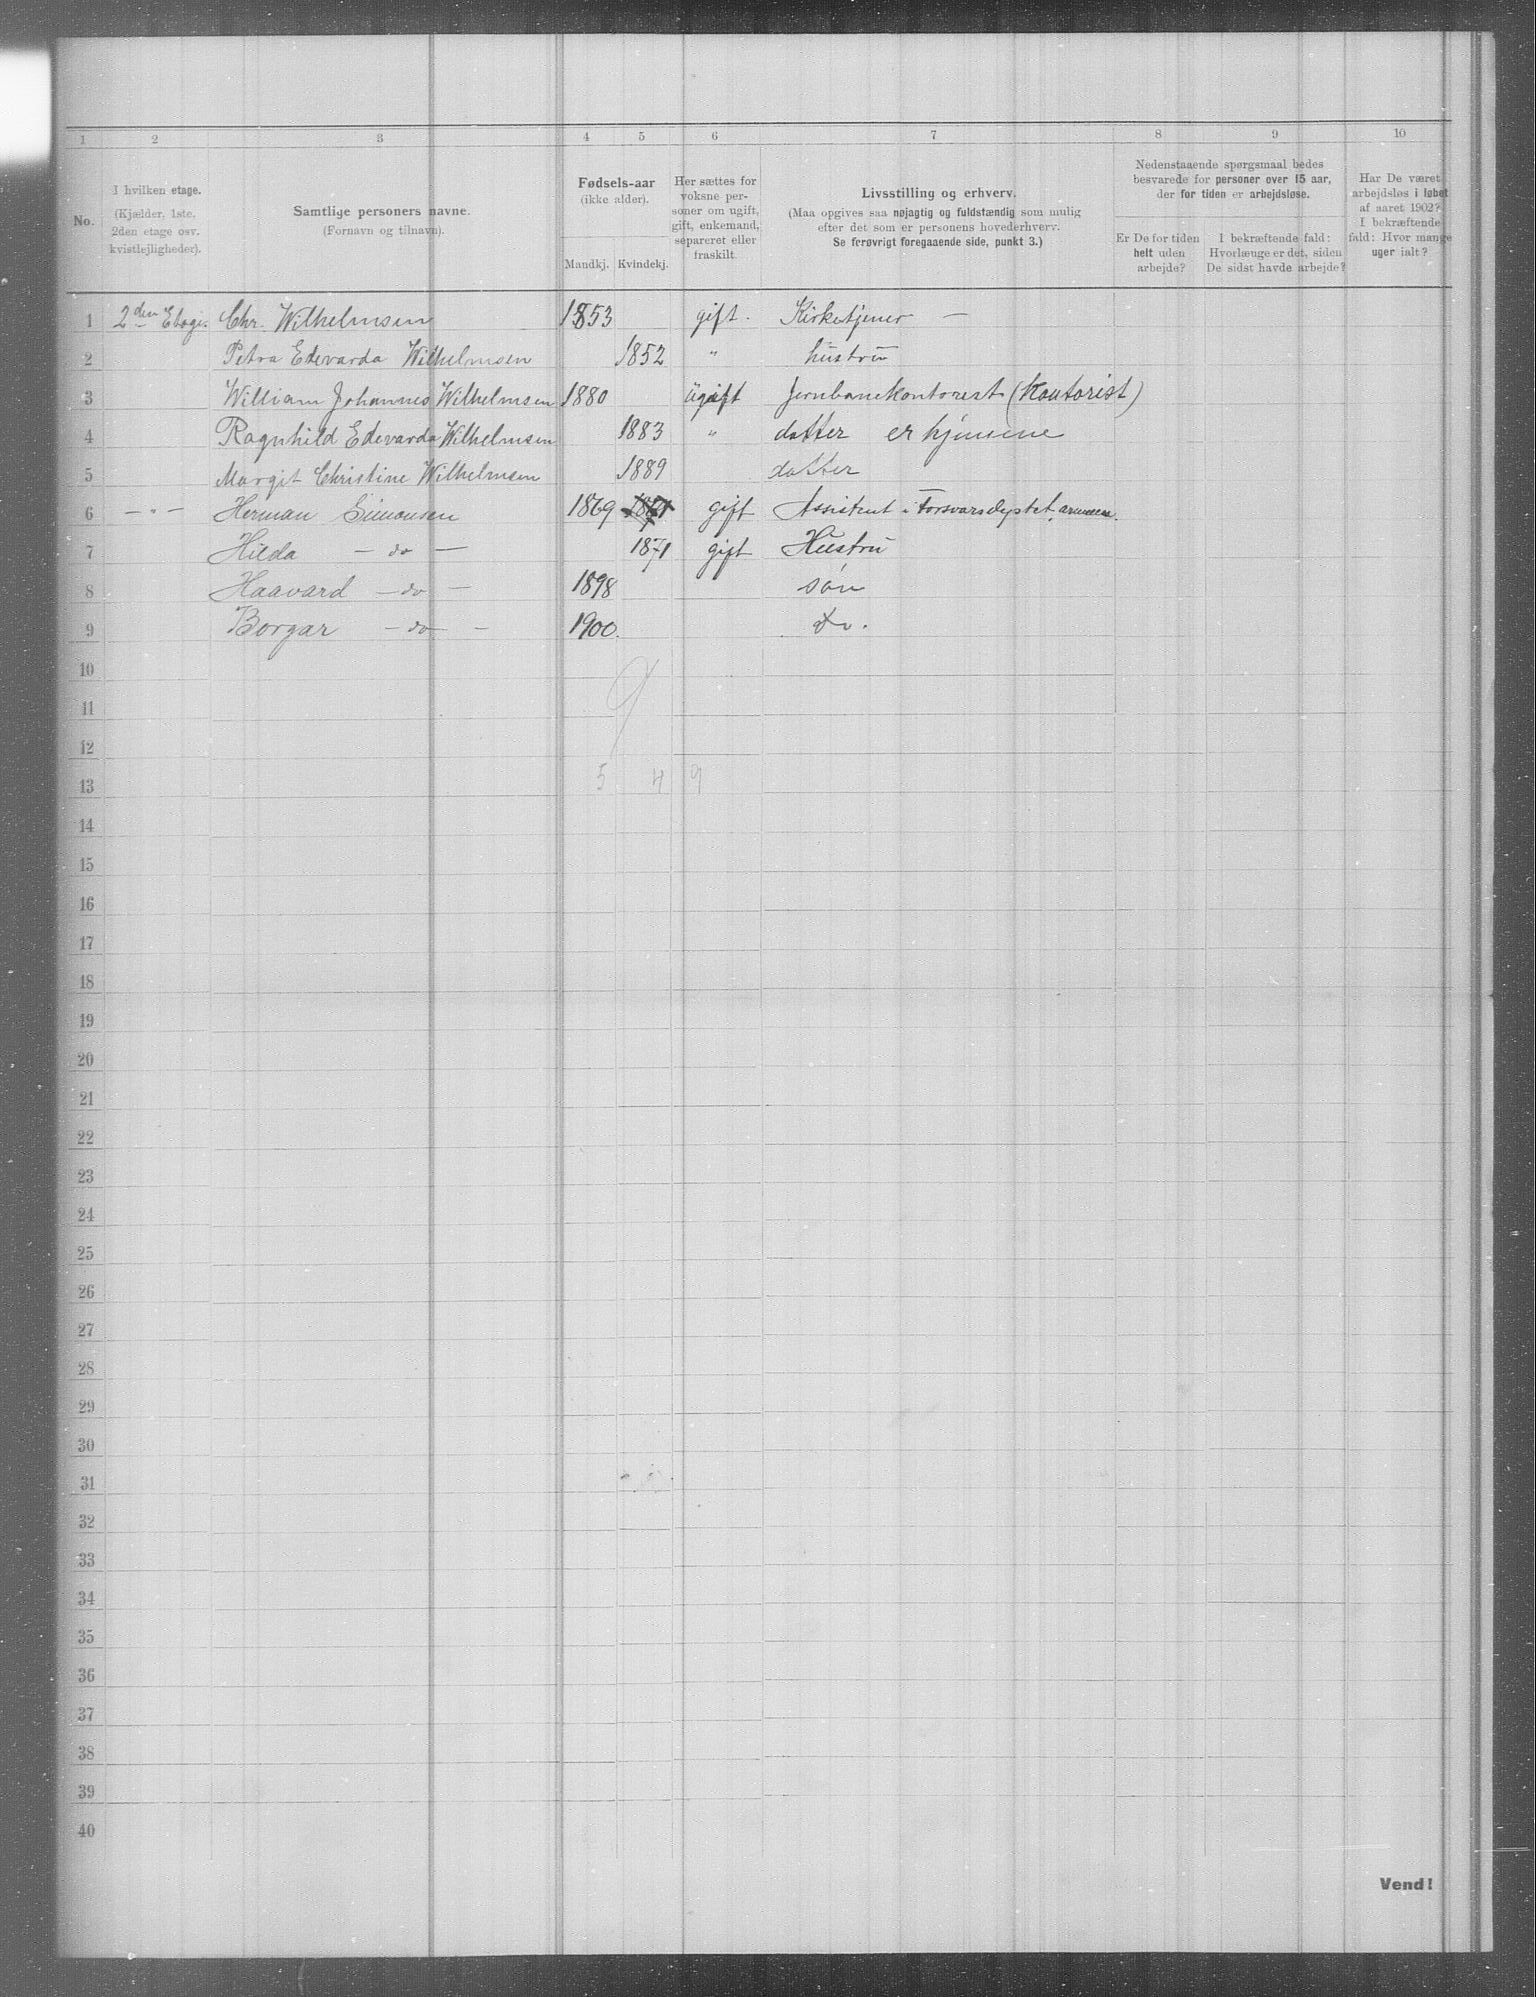 1 2 3 4 5 6 7 8 9 10
No.
I hvilken etage.
(Kjælder, 1ste.
2den etage osv.
kvistlejligheder).
Samtlige personers navne.
(Fornavn og tilnavn).
Fødsels-aar
(ikke alder).
Mandkj. Kvindekj.
Her sættes for
voksne per-
soner om ugift,
gift, enkemand,
separeret eller
fraskilt.
Livsstilling og erhverv.
(Maa opgives saa nøjagtig og fuldstændig som mulig
efter det som er personens hovederhverv.
Se forøvrigt foregaaende side, punkt 3.)
Nedenstaaende spørgsmaal bedes
besvarede for personer over 15 aar,
der for tiden er arbejdsløse.
Er De for tiden
helt uden
arbejde?
I bekræftende fald:
Hvorlænge er det, siden
De sidst havde arbejde?
Har De været
arbejdsløs i løbet
af aaret 1902?
I bekræftende
fald: Hvor mange
uger ialt?
1 2den Etage. Chr. Wilhelmsen 1853 gift. Kirketjener —
2 Petra Edevarda Wilhelmsen 1852 " hustru
3 William Johannes Wilhelmsen 1880 ugift Jernbanekontorist (Kontorist)
4 Ragnhild Edevarda Wilhelmsen 1883 " datter er hjemme
5 Margit Christine Wilhelmsen 1889 datter
6 — " — Herman Simonsen 1869 1871 gift Assistent i Forsvarsdeptet, armeen.
7 Hilda — do — 1871 gift Hustru
8 Haavard — do — 1898 søn
9 Borgar — do — 1900. do.
10
9
11
12
13 5 4 9
14
15
16
17
18
19
20
21
22
23
24
25
26
27
28
29
30
31
32
33
34
35
36
37
38
39
40
Vend!